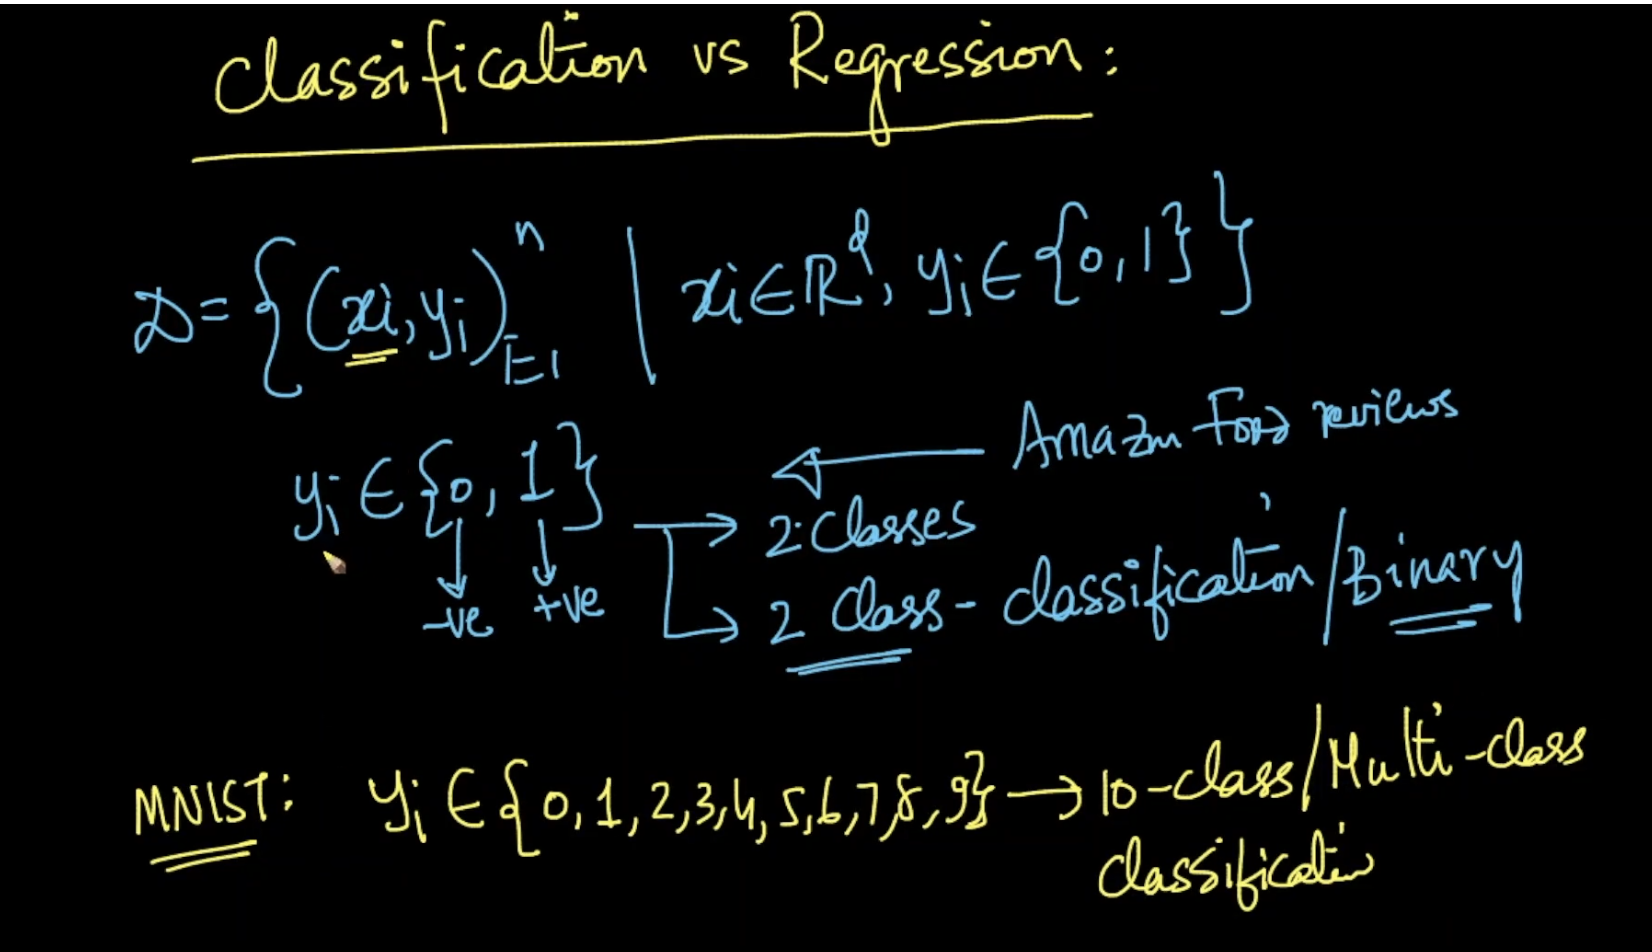 Classification vs Regression:
D = { (xi, yi)ⁿi=1 | xi ∈ ℝᵈ, yi ∈ {0, 1} }
Amazon Food reviews
yi ∈ {0, 1} → 2 Classes
-ve +ve → 2 Class - classification / Binary
MNIST: yi ∈ {0, 1, 2, 3, 4, 5, 6, 7, 8, 9} → 10-class / Multi-class
classification